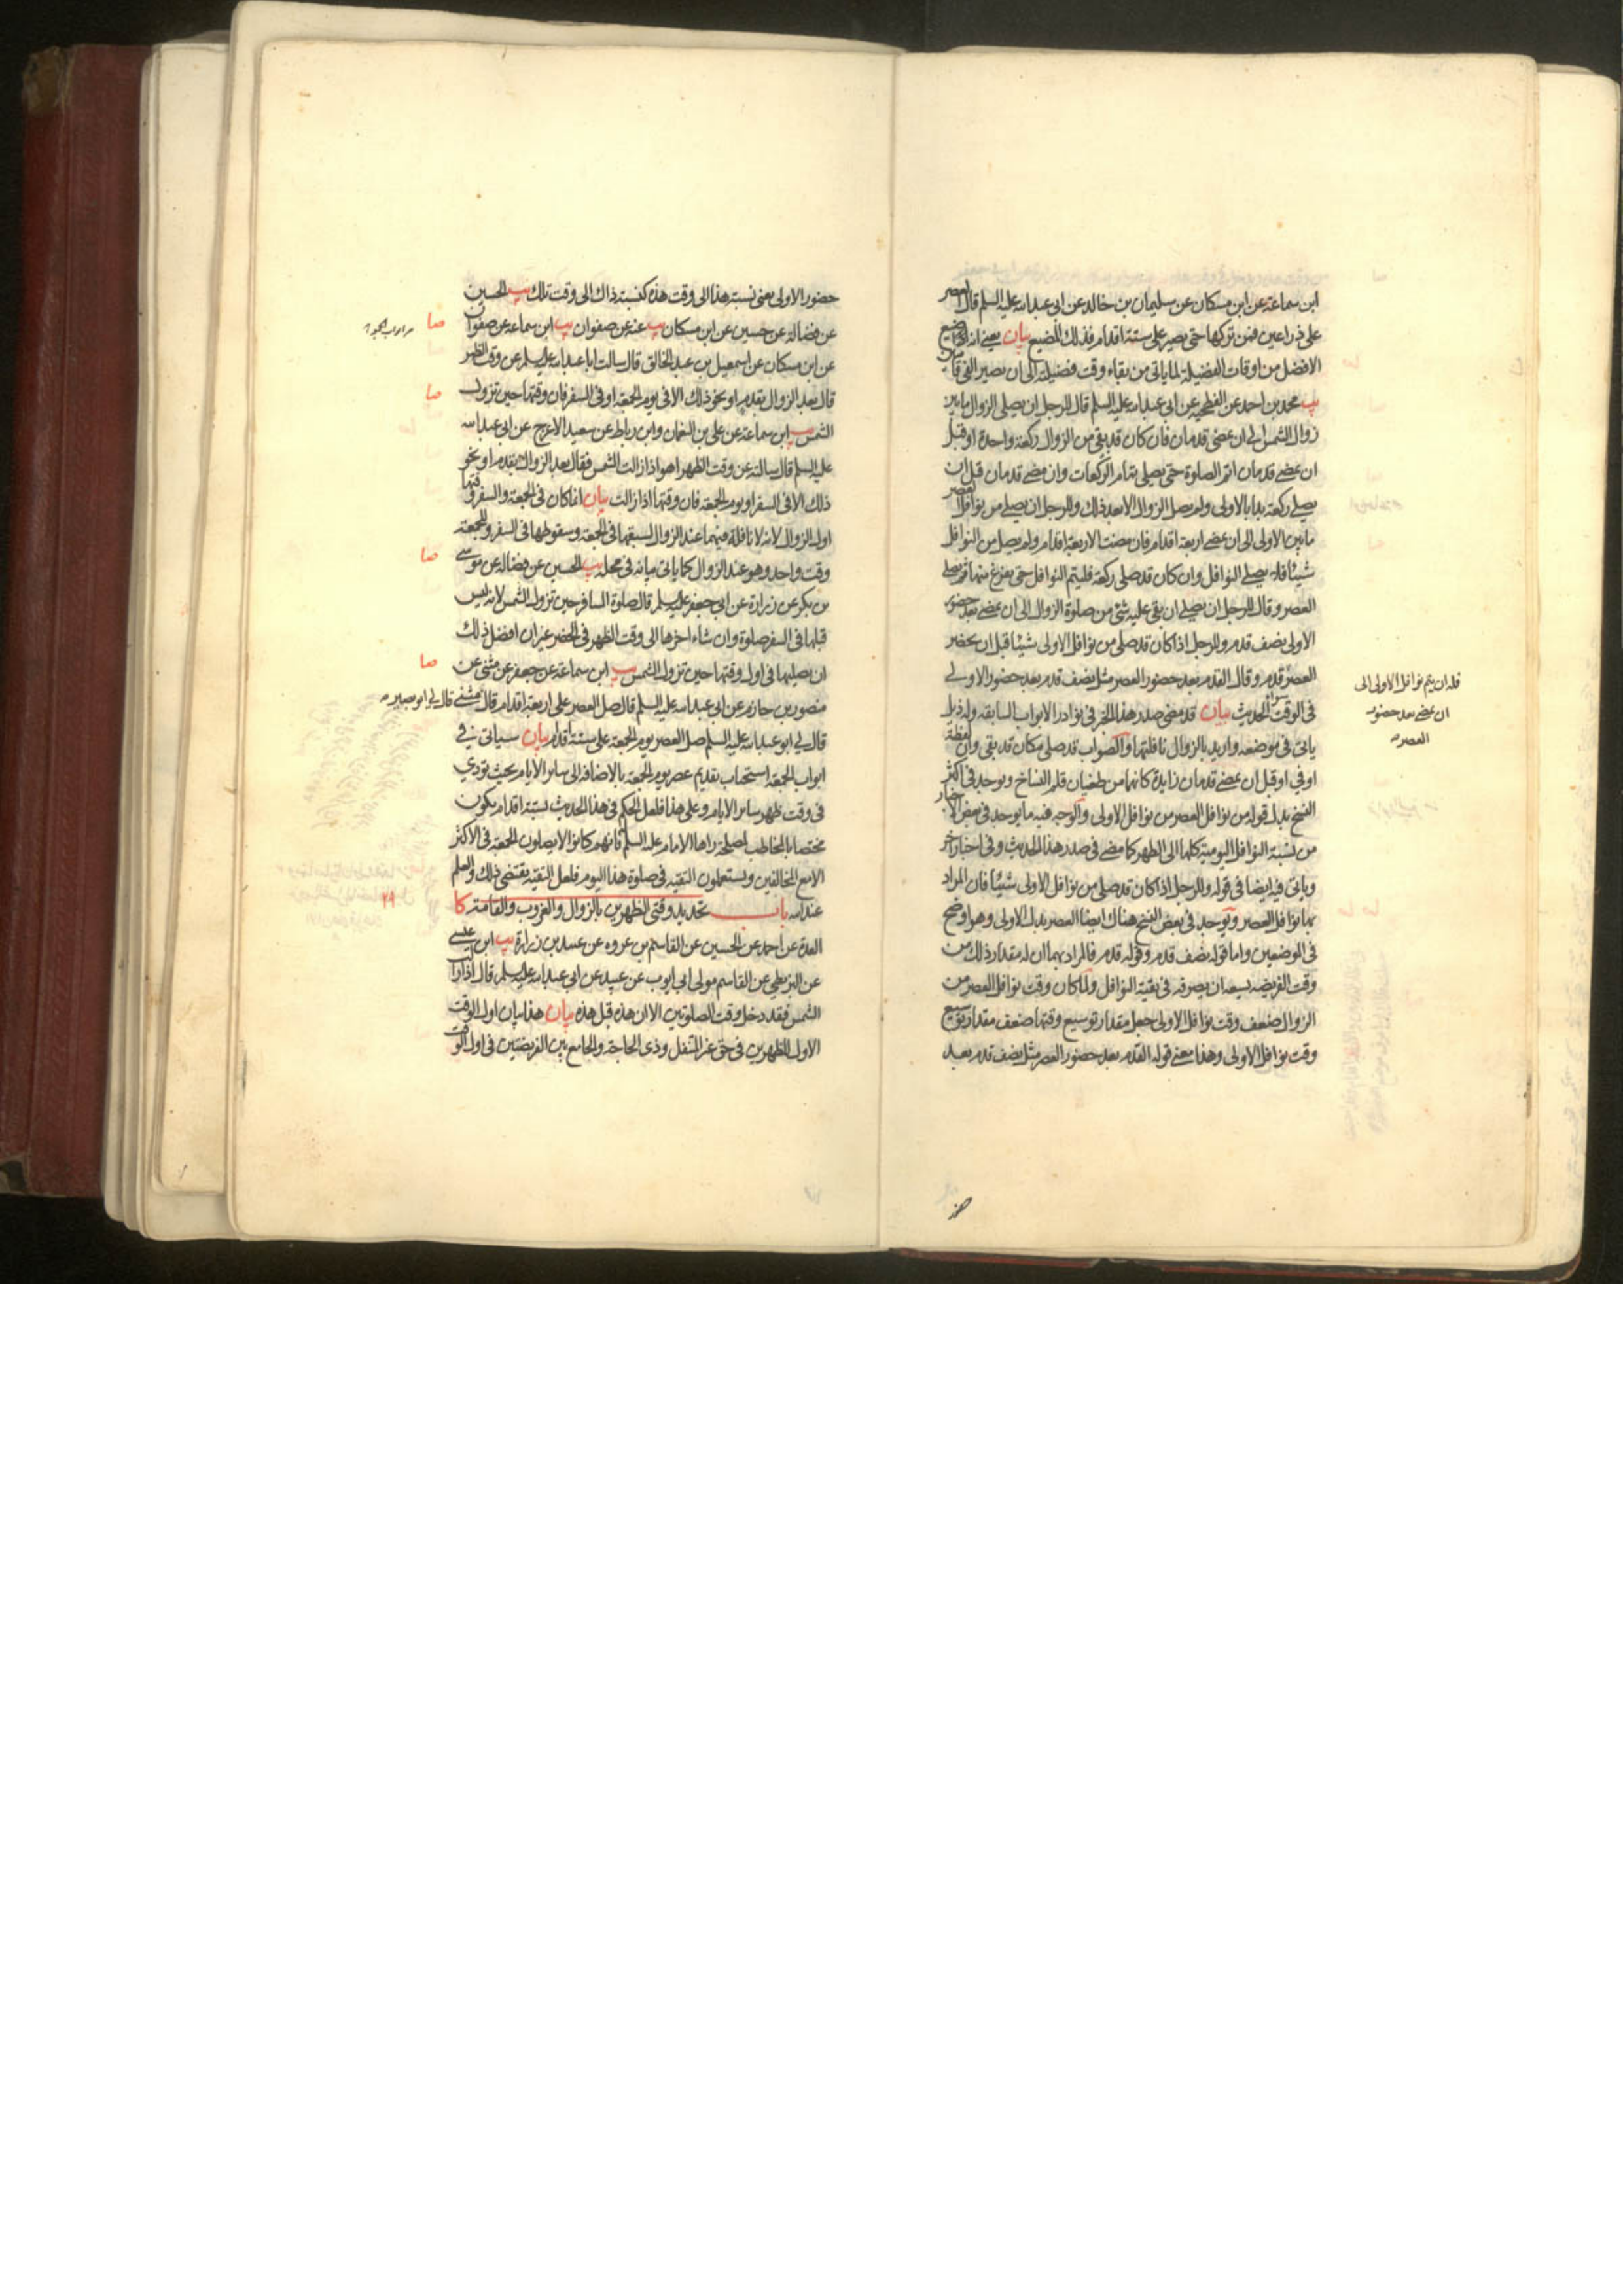 ابن سماعة عن ابن مسكان عن سليمان بن خالد عن ابى عبد الله عليه السلم قال العصر
على ذراعين فمن تركها حتى يصير على ستة اقدام فذلك المضيع بيان يعنى انه اضيع
الافضل من اوقات الفضيلة لما ياتى من بقاء وقت فضيلته الى ان يصير الفئ قامتان
يب محمد بن احمد عن الفطحية عن ابى عبد الله عليه السلم قال للرجل ان يصلى الزوال ما بين
زوال الشمس الى ان يمضى قدمان فان كان قد بقى من الزوال ركعة واحدة او قبل
ان يمضے قدمان اتم الصلوة حتى يصلى تمام الركعات وان مضے قدمان قبل ان
يصلے ركعة بدا بالاولى ولم يصل الزوال الا بعد ذلك وللرجل ان يصلے من نوافل العصر
ما بين الاولى الى ان يمضے اربعة اقدام فان مضت الاربعة اقدام ولم يصل من النوافل
شيئا فلا يصلے النوافل وان كان قد صلى ركعة فليتم النوافل حتى يفرغ منها ثم يصلے
العصر وقال للرجل ان يصلے ان بقى عليه شئ من صلوة الزوال الى ان يمضے بعد حضور
الاولى نصف قدم وللرجل اذا كان قد صلى من نوافل الاولى شيئا قبل ان يحضر
العصر قدم وقال القدم بعد حضور العصر مثل نصف قدم بعد حضور الاولے
فى الوقت سواء الحديث بيان قد مضى صدر هذا الخبر فى نوادر الابواب السابقه وله ذيل
ياتى فى موضعه واريد بالزوال نافلتها والصواب قد صلى مكان قد بقى وان لفظة
او فى او قبل ان يمضے قدمان زايدة كانها من طغيان قلم النساخ ويوجد فى اكثر
النسخ بدل قوله من نوافل العصر من نوافل الاولى والوجه فيه ما يوجد فى بعض الاخبار
من نسبة النوافل اليومية كلها الى الظهر كما مضے فى صدر هذا الحديث وفى اخبار اخر
وياتى فيه ايضا فى قوله وللرجل اذا كان قد صلى من نوافل الاولى شيئا فان المراد
بها نوافل العصر ويوجد فى بعض النسخ هناك ايضا العصر بدل الاولى وهو اوضح
فى الموضعين واما قوله نصف قدم وقوله قدم فالمراد بهما ان له مقدار ذلك من
وقت الفريضه يسعه ان يصرفه فى بقية النوافل ولما كان وقت نوافل العصر من
الزوال ضعف وقت نوافل الاولى جعل مقدار توسيع وقتها ضعف مقدار توسيع
وقت نوافل الاولى وهذا معنے قوله القدم بعد حضور العصر مثل نصف قدم بعد
فله ان يتم نوافل الاولى الى
ان يمضے بعد حضور
العصر
حضور الاولى يعنى نسبة هذا الى وقت هذه كنسبة ذاك الى وقت تلك يب الحسين
عن فضالة عن حسين عن ابن مسكان يب عنه عن صفوان يب ابن سماعة عن صفوان
عن ابن مسكان عن اسمعيل بن عبد الخالق قال سالت ابا عبد الله عليه السلم عن وقت الظهر
قال بعد الزوال بقدم او نحو ذلك الا فى يوم الجمعة او فى السفر فان وقتها حين تزول
الشمس يب ابن سماعة عن على بن النعمان وابن رباط عن سعيد الاعرج عن ابى عبد الله
عليه السلم قال سالته عن وقت الظهر اهو اذا زالت الشمس فقال بعد الزوال بقدم او نحو
ذلك الا فى السفر او يوم الجمعة فان وقتها اذا زالت بيان انما كان فى الجمعة والسفر وقتها
اول الزوال لانه لا نافلة فيهما عند الزوال لسبقها فى الجمعة وسقوطها فى السفر وللجمعة
وقت واحد وهو عند الزوال كما ياتى بيانه فى محله يب الحسين عن فضالة عن موسے
بن بكر عن زرارة عن ابى جعفر عليه السلم قال صلوة المسافر حين تزول الشمس لانه ليس
قبلها فى السفر صلوة وان شاء اخرها الى وقت الظهر فى الحضر غير ان افضل ذلك
ان يصليها فى اول وقتها حين تزول الشمس يب ابن سماعة عن جعفر عن مثنى عن
منصور بن حازم عن ابى عبد الله عليه السلم قال صل العصر على اربعة اقدام قال مثنے قال لے ابو بصير
قال لے ابو عبد الله عليه السلم صل العصر يوم الجمعة على ستة اقدام بيان سياتى فے
ابواب الجمعة استحباب تقديم عصر يوم الجمعة بالاضافة الى ساير الايام بحيث تؤدي
فى وقت ظهر ساير الايام وعلى هذا فلعل الحكم فى هذا الحديث بستة اقدام يكون
مختصا بالمخاطب لمصلحة راها الامام عليه السلم فانهم كانوا لا يصلون الجمعة فى الاكثر
الا مع المخالفين ويستعملون التقية فى صلوة هذا اليوم فلعل التقية يقتضى ذلك والعلم
عند الله باب تحديد وقتى الظهرين بالزوال والغروب والقامة كا
العدة عن احمد عن الحسين عن القاسم بن عروه عن عبيد بن زرارة يب ابن عيسے
عن البزنطى عن القاسم مولى ابى ايوب عن عبيد عن ابى عبد الله عليه السلم قال اذا زالت
الشمس فقد دخل وقت الصلوتين الا ان هذه قبل هذه بيان هذا بيان اول الوقت
الاول للظهرين فى حق غير المتنفل وذى الحاجة والجامع بين الفريضتين فى اول الوقت
صا
صا
صا
صا
٢٩